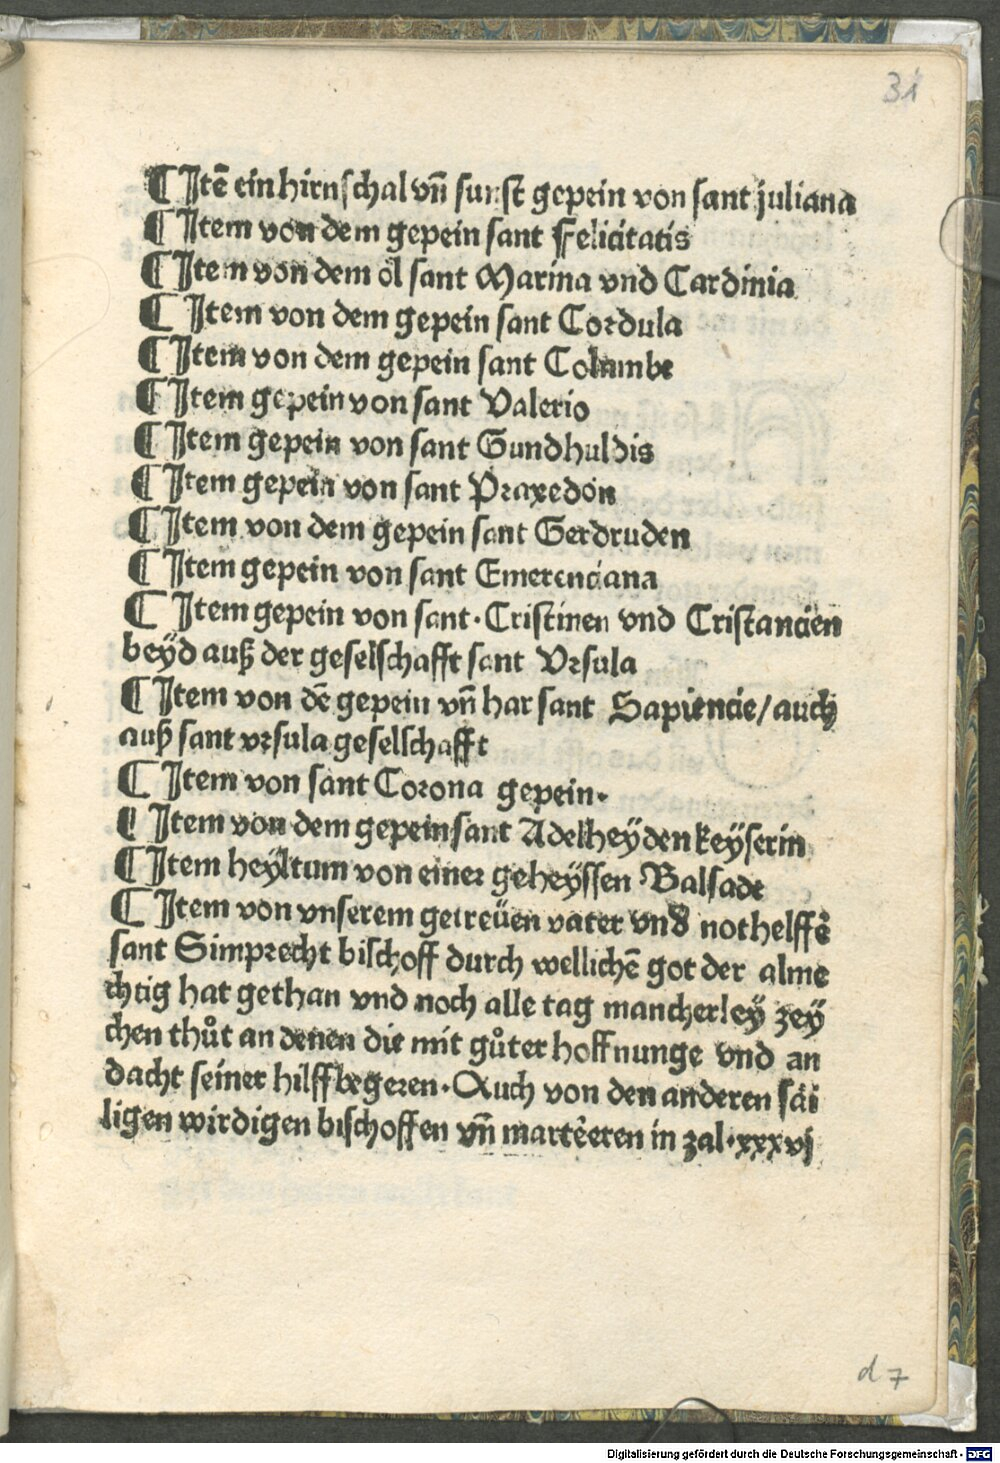 31
¶ Itē ein hirnschal vñ sunst gepein von sant juliana
¶ Item von dem gepein sant Felicitatis
¶ Item von dem öl sant Marina vnd Cardinia
¶ Item von dem gepein sant Cordula
¶ Item von dem gepein sant Columbe
¶ Item gepein von sant Valerio
¶ Item gepein von sant Gundhuldis
¶ Item gepein von sant Praxedon
¶ Item von dem gepein sant Gerdruden
¶ Item gepein von sant Emerenciana
¶ Item gepein von sant · Cristinen vnd Cristancien
beÿd auß der geselschafft sant Vrsula
¶ Item von dē gepein vñ har sant Sapiencie / auch
auß sant vrsula geselschafft
¶ Item von sant Corona gepein ·
¶ Item von dem gepein sant Adelheÿden keÿserin
¶ Item heÿltum von einer geheÿssen Balsade
¶ Item von vnserem getreüen vater vnd nothelffē
sant Simprecht bischoff durch wellichē got der alme
chtig hat gethan vnd noch alle tag mancherleÿ zeÿ
chen thůt an denen die mit gůter hoffnunge vnd an
dacht seiner hilff begeren · Auch von den anderen säi
ligen wirdigen bischoffen vñ martēeren in zal · xxxvj
d 7
Digitalisierung gefördert durch die Deutsche Forschungsgemeinschaft - DFG